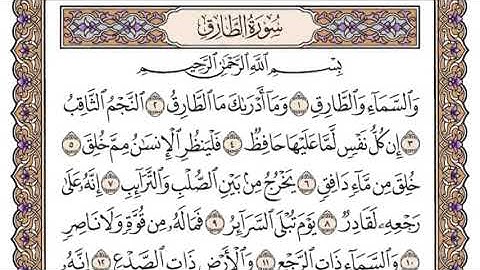 سُورَةُ الطَّارِقِ
بِسْمِ اللَّهِ الرَّحْمَٰنِ الرَّحِيمِ
وَالسَّمَاءِ وَالطَّارِقِ ١ وَمَا أَدْرَىٰكَ مَا الطَّارِقُ ٢ النَّجْمُ الثَّاقِبُ
٣ إِن كُلُّ نَفْسٍ لَّمَّا عَلَيْهَا حَافِظٌ ٤ فَلْيَنظُرِ الْإِنسَٰنُ مِمَّ خُلِقَ ٥
خُلِقَ مِن مَّاءٍ دَافِقٍ ٦ يَخْرُجُ مِن بَيْنِ الصُّلْبِ وَالتَّرَائِبِ ٧ إِنَّهُ عَلَىٰ
رَجْعِهِ لَقَادِرٌ ٨ يَوْمَ تُبْلَى السَّرَائِرُ ٩ فَمَا لَهُ مِن قُوَّةٍ وَلَا نَاصِرٍ
١٠ وَالسَّمَاءِ ذَاتِ الرَّجْعِ ١١ وَالْأَرْضِ ذَاتِ الصَّدْعِ ١٢ إِنَّهُ